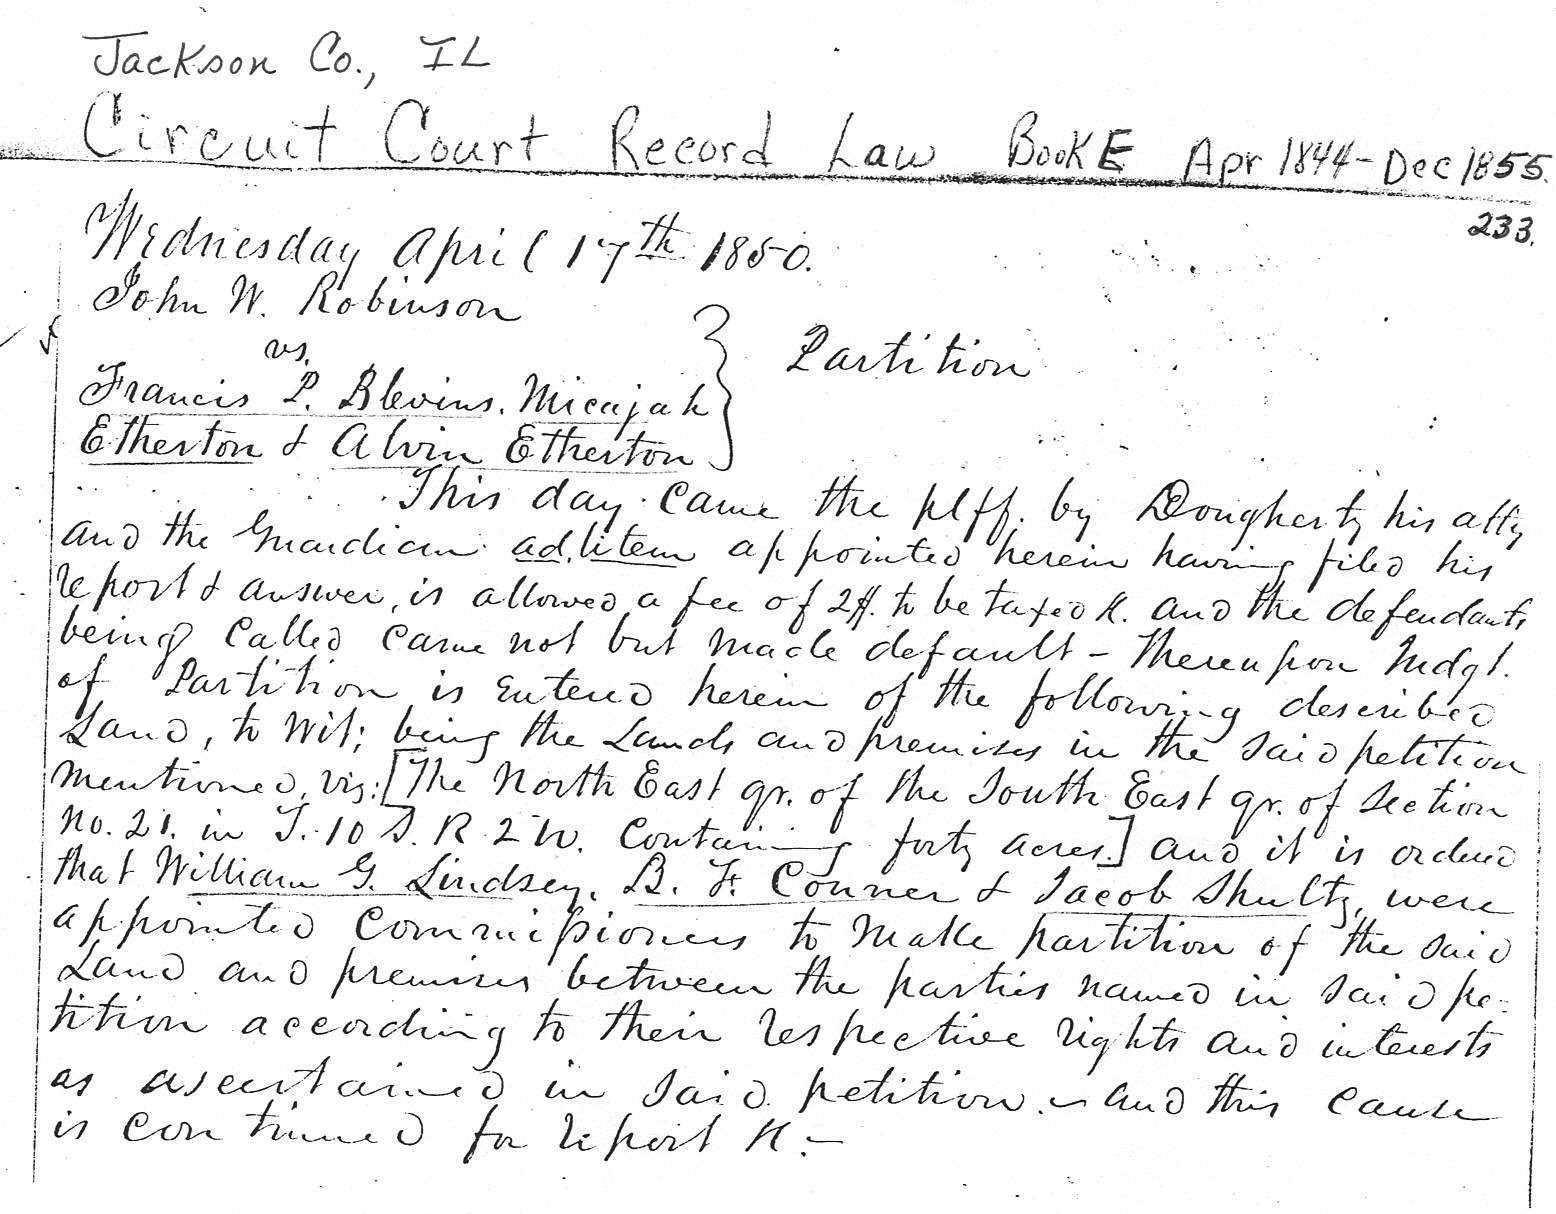 Jackson Co., IL
Circuit Court Record Law Book E Apr 1844 - Dec 1855.
233.
Wednesday April 17th 1850.
John W. Robinson
vs.
Partition
Francis P. Blevins, Micajah
Etherton & Alvin Etherton
This day came the plff. by Dougherty his atty
and the Guardian ad.litem appointed herein having filed his
report & answer, is allowed a fee of 2$. to be taxed &. and the defendants
being called came not but made default - Thereupon Judgt.
of Partition is entered herein of the following described
Land, to Wit; being the Lands and premises in the said petition
mentioned, viz: [The North East qr. of the South East qr. of Section
No. 21. in T. 10 S. R 2 W. Containing forty acres.] and it is ordered
that William G. Lindsey, B. F. Conner & Jacob Shultz, were
appointed Commissioners to make partition of the said
Land and premises between the parties named in said pe=
tition according to their respective rights and interests
as ascertained in said petition. - and this cause
is continued for report &. -